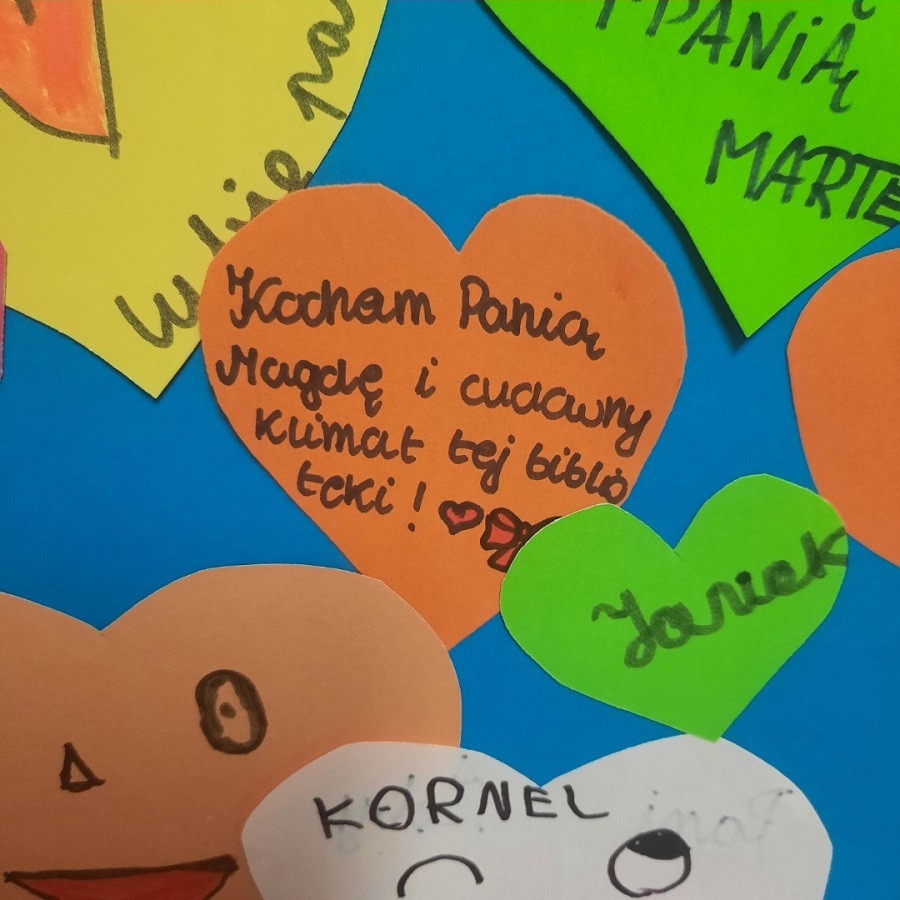 PANIĄ
MARTE
Lubię pa
Kocham Panią
Magdę i cudowny
klimat tej biblio
teki!
Janiek
KORNEL